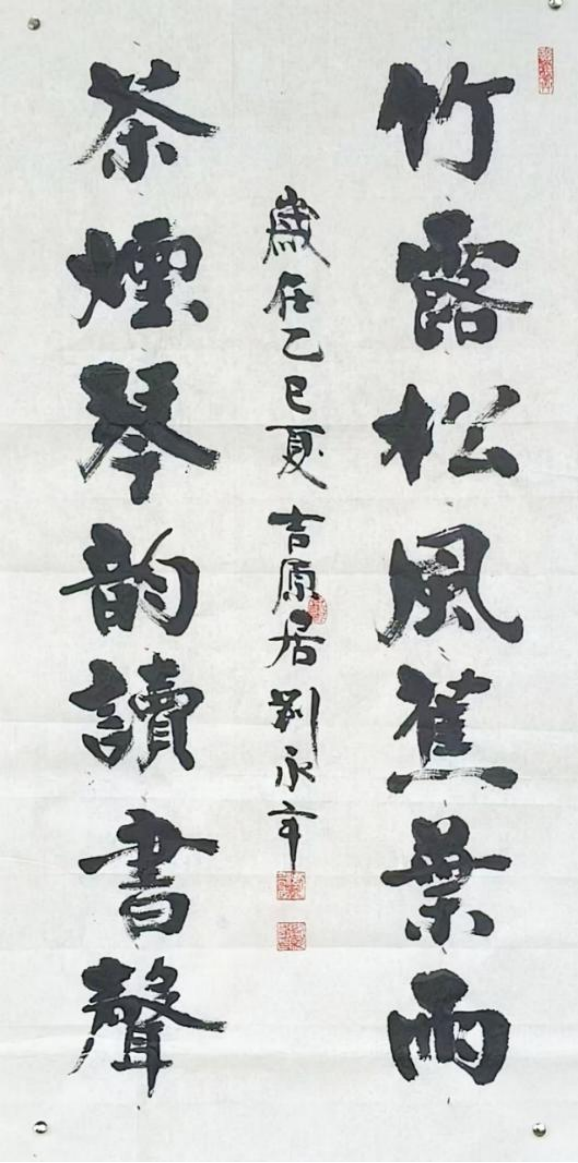 竹露松風蕉葉雨
茶煙琴韵讀書聲
歲在乙巳夏吉原居劉永